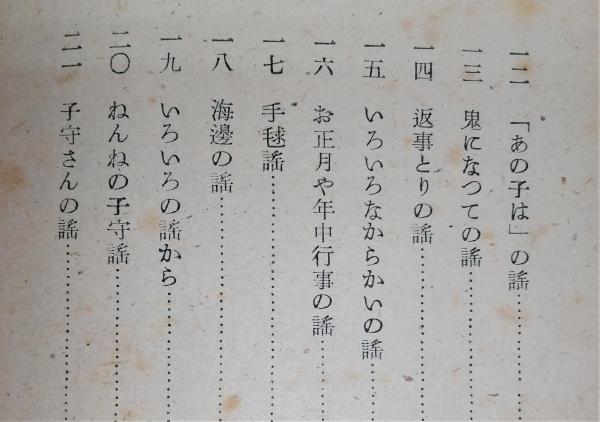 一二 「あの子は」の謠……………
一三 鬼になつての謠……………
一四 返事とりの謠……………
一五 いろいろなからかいの謠……………
一六 お正月や年中行事の謠……………
一七 手毬謠……………
一八 海邊の謠……………
一九 いろいろの謠から……………
二〇 ねんねの子守謠……………
二一 子守さんの謠……………